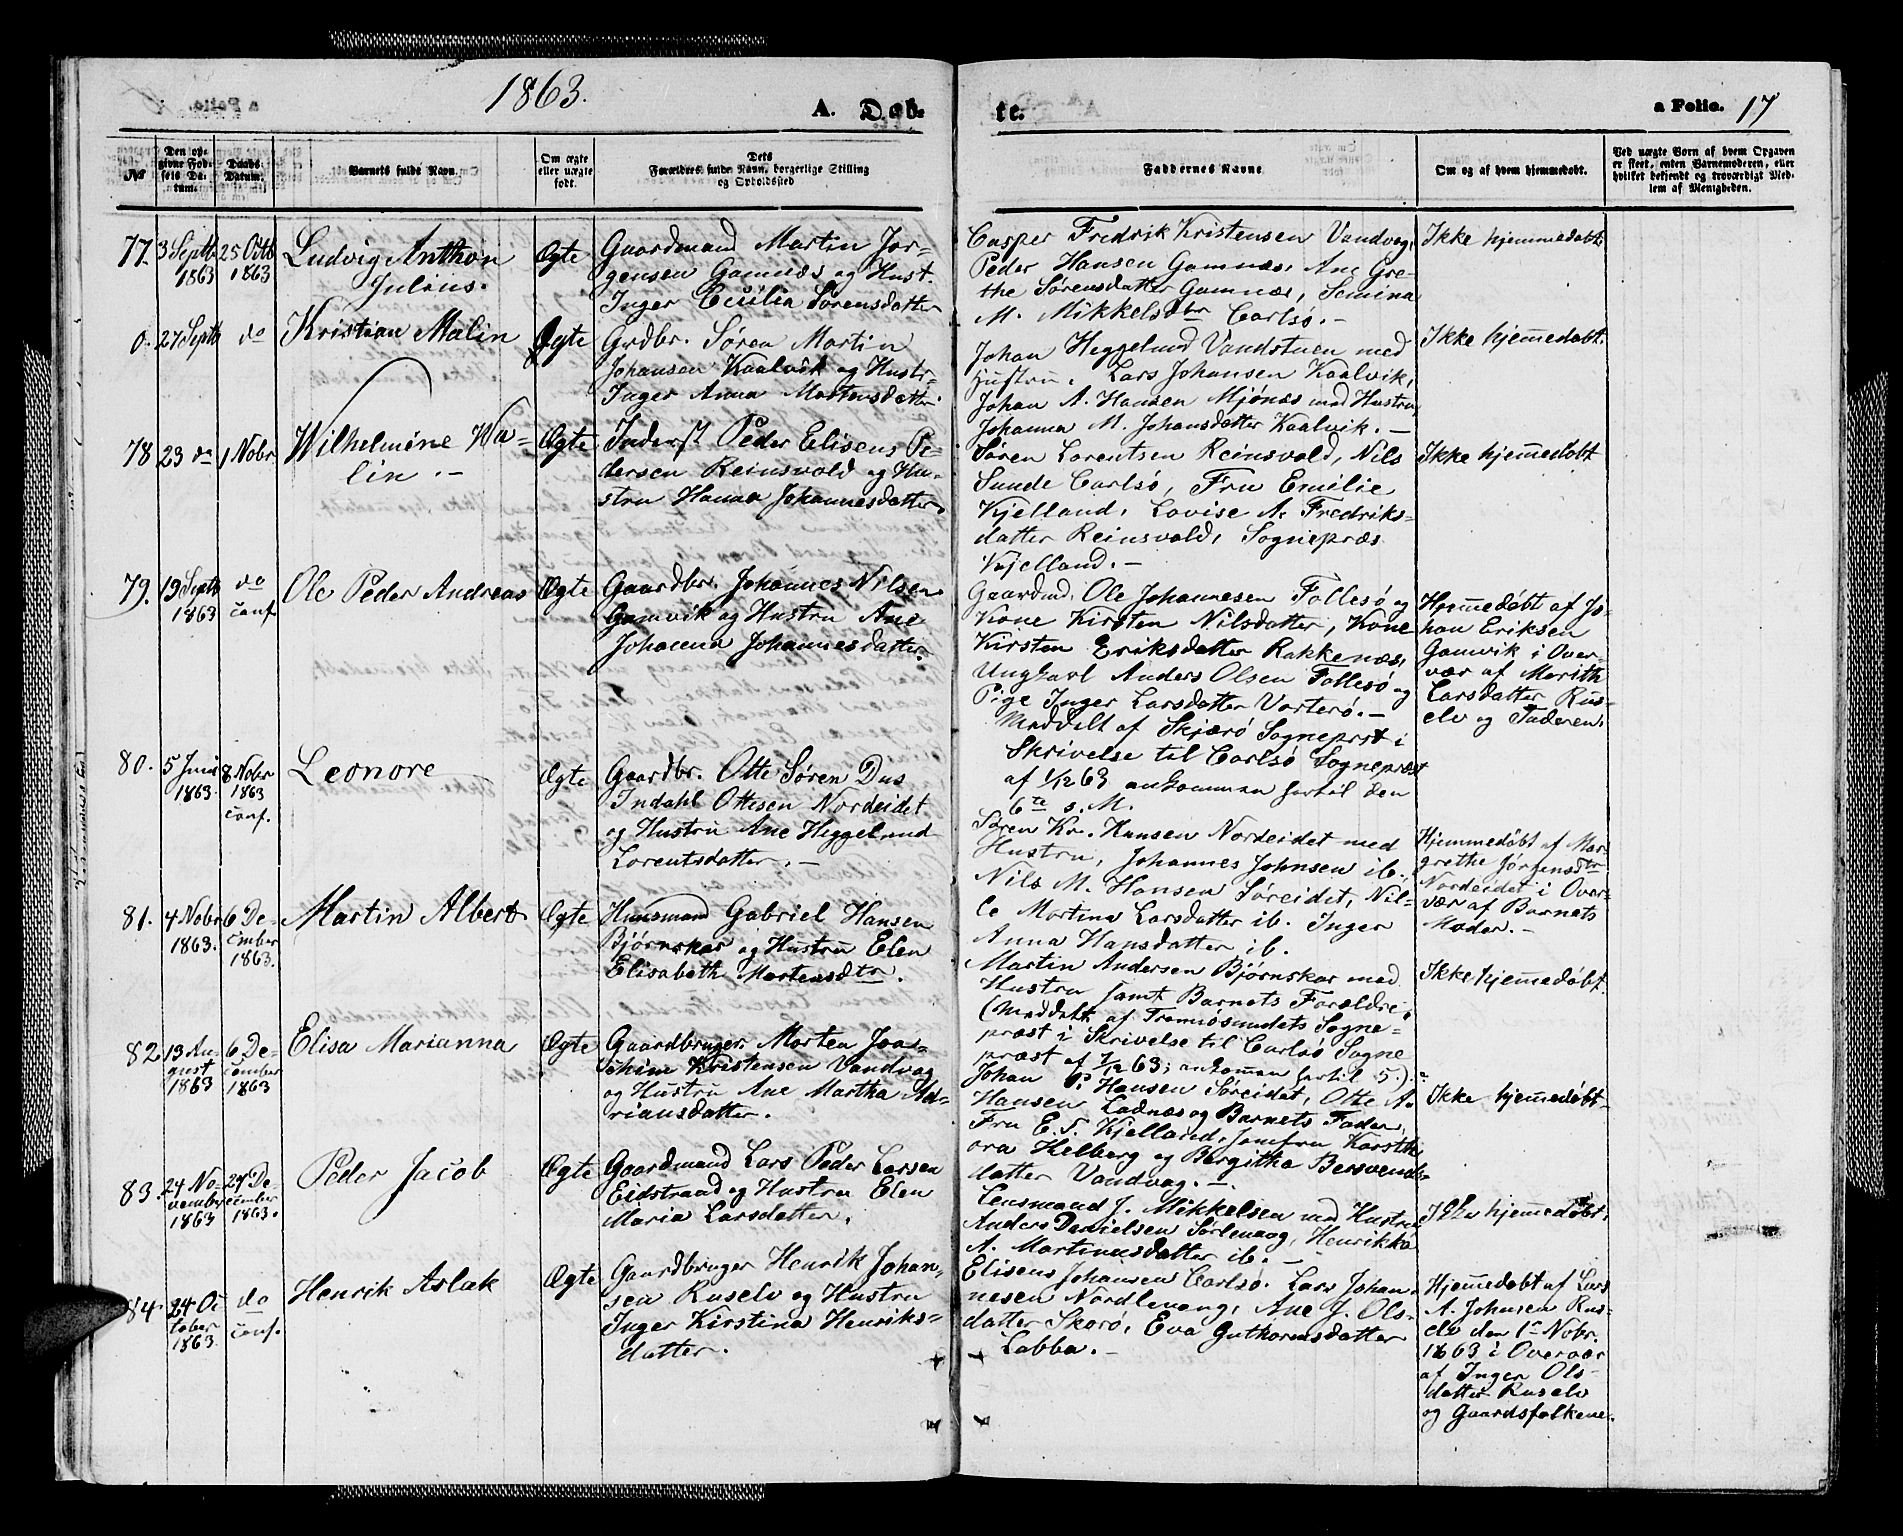 1863.
A. Døb-
te.
a Folio. 17
No
Den op-
givne Fød-
sels Da-
tum.
Daabs
Datum.
Barnets fulde Navn.
Om ægte
eller uægte
født.
Dets
Forældres fulde Navn, borgerlige Stilling
og Opholdssted
Faddernes Navne
Om og af hvem hjemmedøbt.
Ved uægte Børn af hvem Opgaven
er skeet, enten Barnemoderen, eller
hvilket bekjendt og troværdigt Med-
lem af Menigheden.
77.
3 Septb
1863
25 Octb
1863
Ludvig Anthon
Julius.
Ægte
Gaardmand Martin Jør-
gensen Gamnæs og Hust.
Inger Cecilia Sørensdatter
Casper Fredrik Kristensen Vandvag,
Peder Hansen Gamnæs, Ane Gre-
the Sørensdatter Gamnæs, Semina
M. Mikkelsdtr Carlsø.-
Ikke hjemmedøbt.
0.
27 Septb
do
Kristian Malin
Ægte
Grdbr. Søren Martin
Johansen Kaalvik og Hustr.
Inger Anna Mortensdatter.
Johan Heggelund Vandstuen med
Hustru, Lars Johansen Kaalvik,
Johan A. Hansen Mjønæs med Hustru
Johanna M. Johansdatter Kaalvik.-
Ikke hjemmedøbt.
78
23 do
1 Nobr
Wilhelmine Wa-
lin.-
Ægte
Inderst Peder Elisens Pe-
dersen Reinsvold og Hu-
stru Hanna Johannesdatter.
Søren Lorentsen Reinsvold, Nils
Sunde Carlsø, Fru Emilie
Kjelland, Lovise A. Fredriks-
datter Reinsvold, Sognepræs
Kjelland.-
Ikke hjemmedøbt
79.
19 Septb
1863
do
conf.
Ole Peder Andreas
Ægte
Gaardbr. Johannes Nilsen
Gamvik og Hustru Ane
Johanna Johannesdatter.
Gaardmd. Ole Johannesen Follesø og
Kone Kirsten Nilsdatter, Kone
Kirsten Eriksdatter Rakkenæs,
Ungkarl Anders Olsen Follesø og
Pige Inger Larsdatter Vorterø.-
Meddelt af Skjærø Sogneprst i
Skrivelse til Carlsø Sognepræst
af 1/12 63 ankommen hertil den
6te s. M.
Hjemmedøbt af Jo-
han Eriksen
Gamvik i Over-
vær af Marith
Larsdatter Rus-
elv og Faderen.
80.
5 Juni
1863.
8 Nobr
1863
conf.
Leonore
Ægte
Gaardbr. Otte Søren Dus
Indahl Ottesen Nordeidet
og Hustru Ane Heggelund
Lorentsdatter.-
Søren Kr. Hansen Nordeidet med
Hustru, Johannes Johnsen ib.,
Nils M. Hansen Søreidet, Nil-
le Martina Larsdatter ib. Inger
Anna Hansdatter ib.
Hjemmedøbt af Mar-
grethe Jørgensdtr
Nordeidet i Over-
vær af Barnets
Moder.-
81.
4 Nobr
1863.
6 De-
cember
1863.
Martin Albert
Ægte
Huusmand Gabriel Hansen
Bjørnskar og Hustru Elen
Elisabeth Mortensdtr.
Martin Andersen Bjørnskar med
Hustru samt Barnets Forældre,
(Meddelt af Tromsøsundets Sogne-
præst i Skrivelse til Carlsø Sogne
præst af 1/12 63; ankommen hertil 5.).-
Ikke hjemmedøbt.
82
13 Au-
gust
1863
6 De-
cember
1863
Elisa Marianna
Ægte
Gaardbruger Morten Joa-
chim Kristensen Vandvag
og Hustru Ane Martha Ad-
riansdatter.
Johan P. Hansen Søreidet, Otte A.
Hansen Ladnæs og Barnets Fader,
Fru E. S. Kjelland, Jomfru Karsthi
ora Helberg og Bergitha Bersvends-
datter Vandvag.-
Ikke hjemmedøbt-
83.
24 No-
vember
1863
27 De-
cember
1863.
Peder Jacob
Ægte
Gaardmand Lars Peder Larsen
Eidstrand og Hustru Elen
Maria Larsdatter.
Lensmand J. Mikkelsen med Hustru
Anders Danielsen Sørlenang, Henrikka
A. Martinusdatter ib.-
Ikke hjemmedøbt.
84.
24 Oc
tober
1863
do
conf.
Henrik Aslak
Ægte
Gaardbruger Henrik Johan-
sen Ruselv og Hustru
Inger Kirstina Henriks-
datter.
Elisens Johansen Carlsø. Lars Johan-
nesen Nordlenang, Ane J. Ols-
datter Skorø, Eva Guthormsdatter
Labba.-
Hjemmedøbt af Lars
A. Johnsen Rus-
elv den 1te Nobr.
1863 i Overvær
af Inger Ols-
datter Ruselv
og Gaardsfolkene.